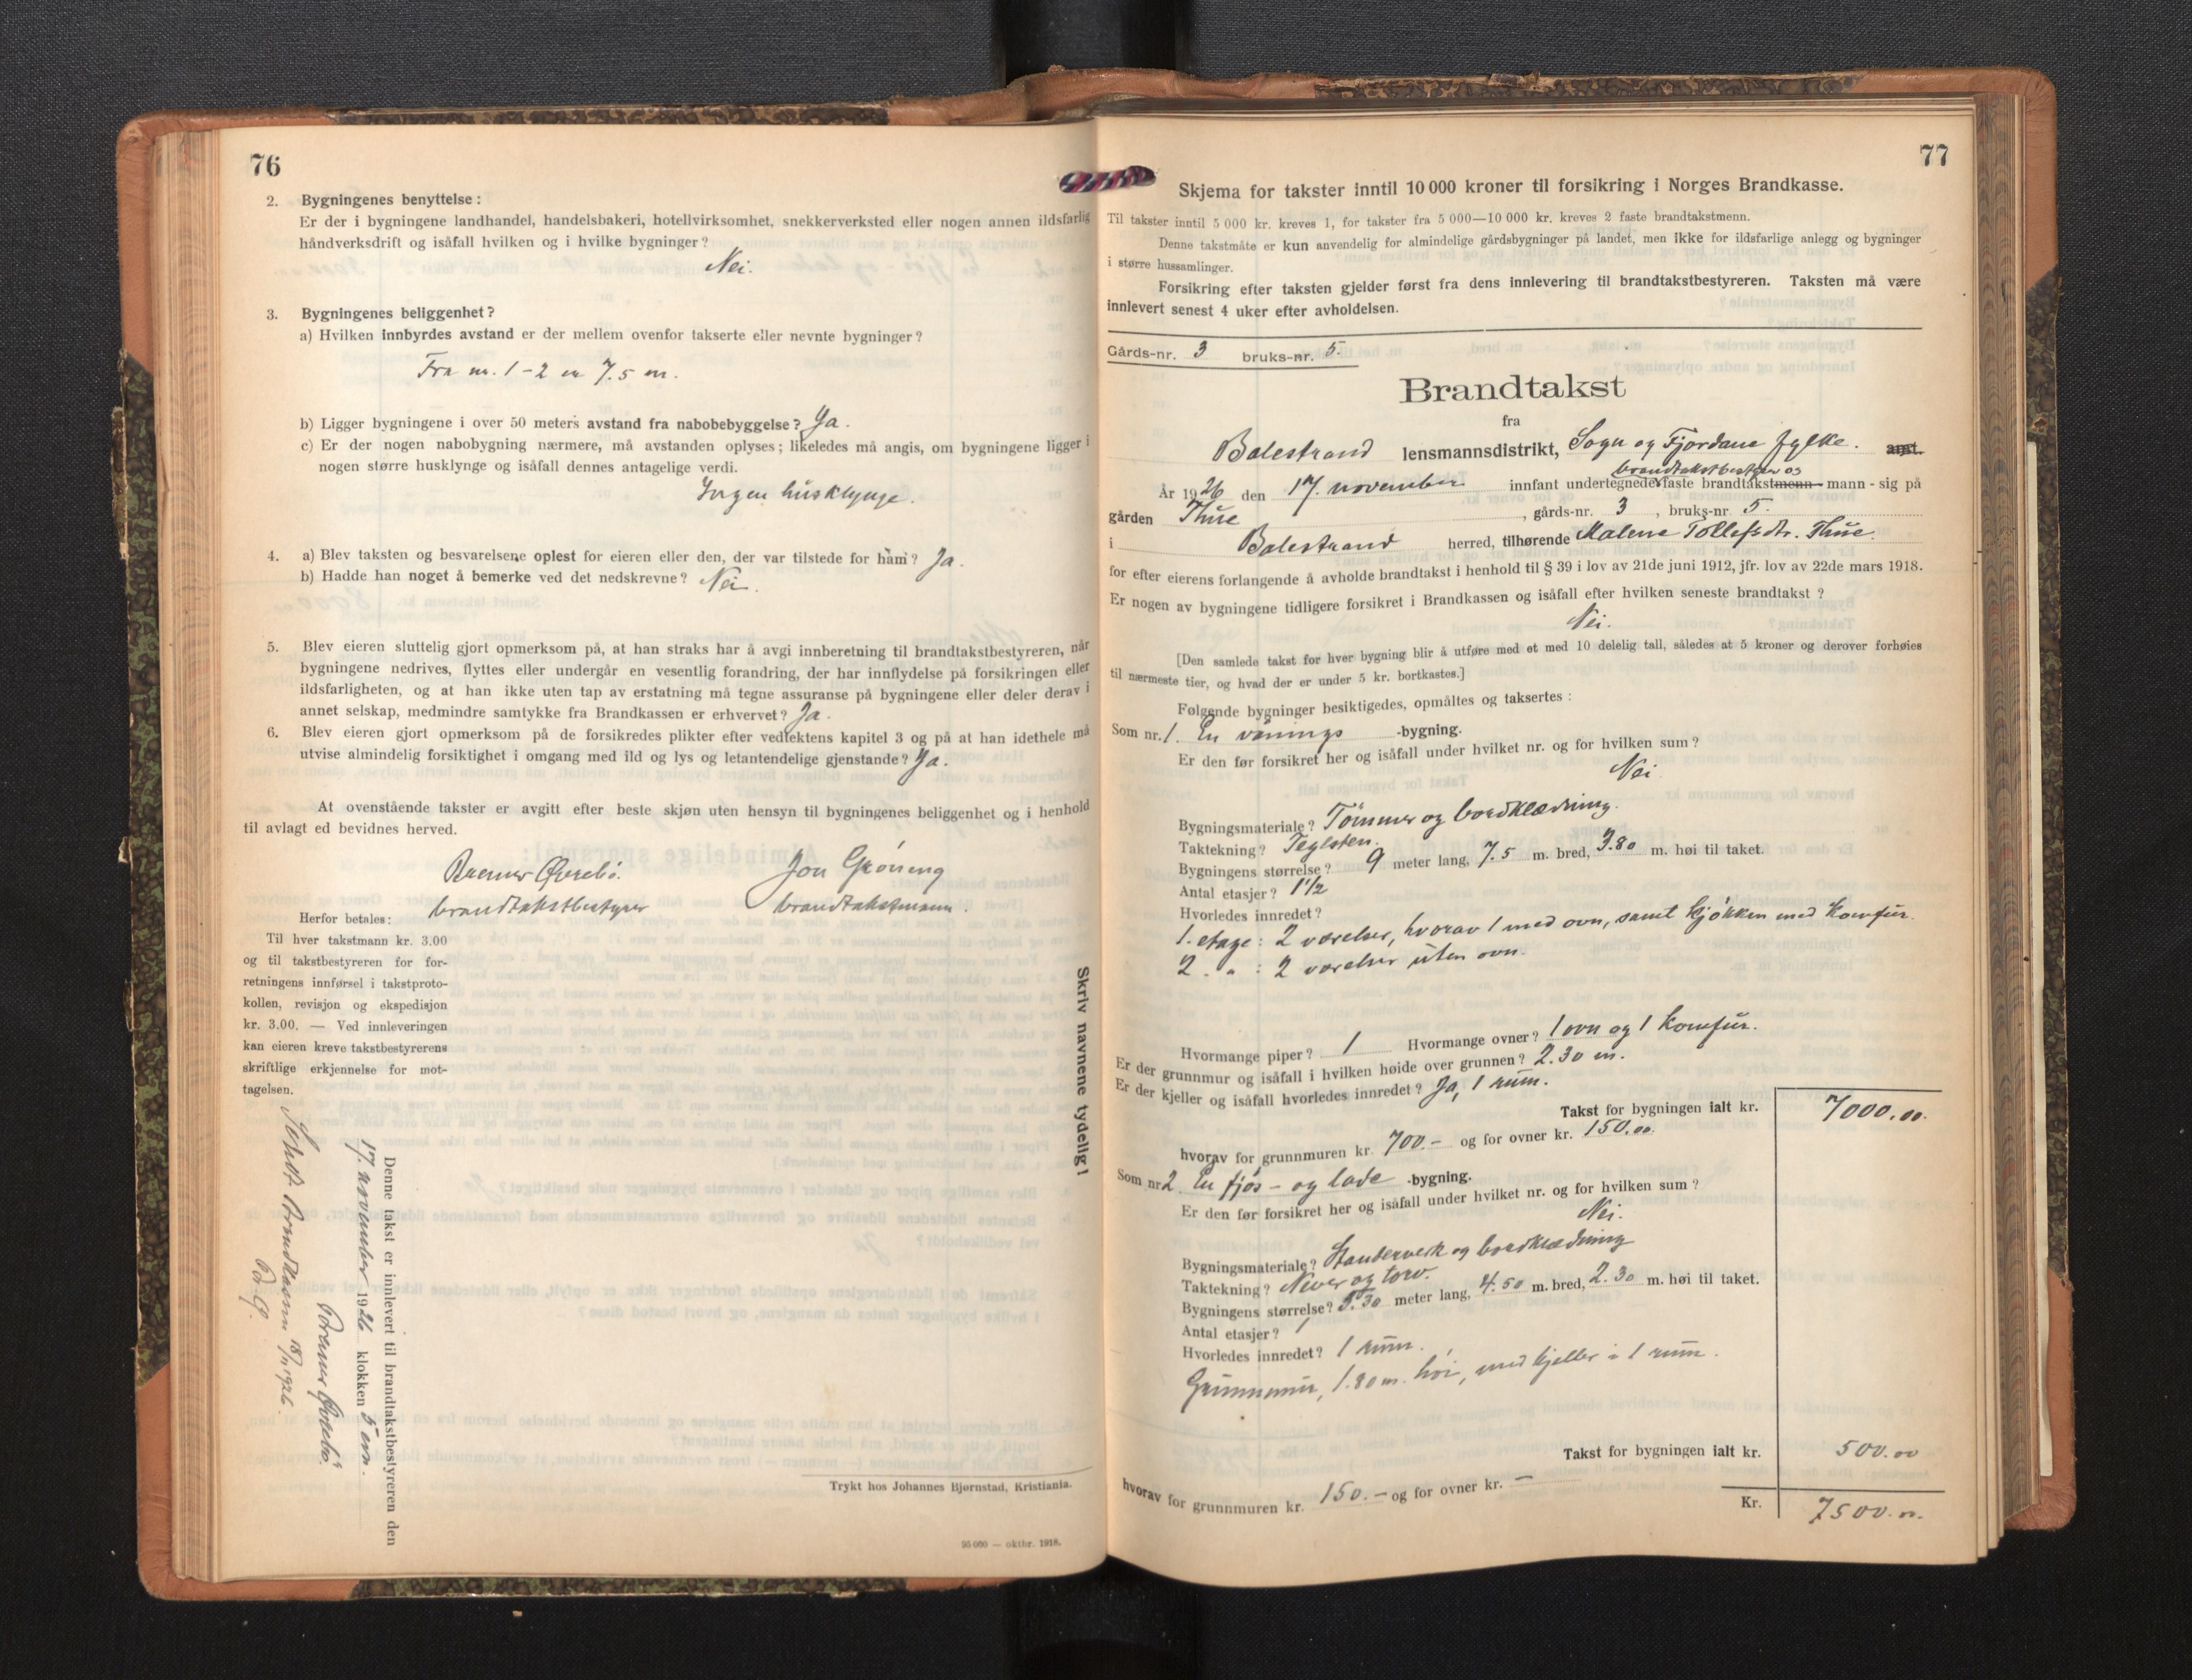 76
2. Bygningenes benyttelse:
Er der i bygningene landhandel, handelsbakeri, hotellvirksomhet, snekkerverksted eller nogen annen ildsfarlig
håndverksdrift og isåfall hvilken og i hvilke bygninger?
Nei.
3. Bygningenes beliggenhet?
a) Hvilken innbyrdes avstand er der mellem ovenfor takserte eller nevnte bygninger?
Fra nr. 1-2 er 7.5 m.
b) Ligger bygningene i over 50 meters avstand fra nabobebyggelse? Ja.
c) Er der nogen nabobygning nærmere, må avstanden oplyses; likeledes må angis, om bygningene ligger i
nogen større husklynge og isåfall dennes antagelige verdi.
Ingen husklynge.
4. a) Blev taksten og besvarelsene oplest for eieren eller den, der var tilstede for ham? Ja.
b) Hadde han noget å bemerke ved det nedskrevne? Nei.
5. Blev eieren sluttelig gjort opmerksom på, at han straks har å avgi innberetning til brandtakstbestyreren, når
bygningene nedrives, flyttes eller undergår en vesentlig forandring, der har innflydelse på forsikringen eller
ildsfarligheten, og at han ikke uten tap av erstatning må tegne assuranse på bygningene eller deler derav i
annet selskap, medmindre samtykke fra Brandkassen er erhvervet? Ja.
6. Blev eieren gjort opmerksom på de forsikredes plikter efter vedtektens kapitel 3 og på at han idethele må
utvise almindelig forsiktighet i omgang med ild og lys og letantendelige gjenstande? Ja.
At ovenstående takster er avgitt efter beste skjøn uten hensyn til bygningenes beliggenhet og i henhold
til avlagt ed bevidnes herved.
Øvrebö. Jon Gröneng
brandtakstbestyrer brandtakstmann.
Herfor betales:
Til hver takstmann kr. 3.00
og til takstbestyreren for for-
retningens innførsel i takstproto-
kollen, revisjon og ekspedisjon
kr. 3.00. — Ved innleveringen
kan eieren kreve takstbestyrerens
skriftlige erkjennelse for mot-
tagelsen.
Skriv navnene tydelig!
Denne takst er innlevert til brandtakstbestyreren den
17. november 1926 klokken 5 em.
Øvrebö.
Sendt Brandkassen 18/11 1926.
Trykt hos Johannes Bjørnstad, Kristiania.
95 000 — oktbr. 1918.
77
Skjema for takster inntil 10 000 kroner til forsikring i Norges Brandkasse.
Til takster inntil 5 000 kr. kreves 1, for takster fra 5 000—10 000 kr. kreves 2 faste brandtakstmenn.
Denne takstmåte er kun anvendelig for almindelige gårdsbygninger på landet, men ikke for ildsfarlige anlegg og bygninger
i større hussamlinger.
Forsikring efter taksten gjelder først fra dens innlevering til brandtakstbestyreren. Taksten må være
innlevert senest 4 uker efter avholdelsen.
Gårds-nr. 3 bruks-nr. 5.
Brandtakst
fra
Balestrand lensmannsdistrikt, Sogn og Fjordane fylke. amt.
brandtakstbestyrer og
År 1926 den 17. november innfant undertegnede faste brandtakstmenn - mann - sig på
gården Thue, gårds-nr. 3, bruks-nr. 5.
i Balestrand herred, tilhørende Malene Tollefsdtr. Thue.
for efter eierens forlangende å avholde brandtakst i henhold til § 39 i lov av 21de juni 1912, jfr. lov av 22de mars 1918.
Er nogen av bygningene tidligere forsikret i Brandkassen og isåfall efter hvilken seneste brandtakst?
Nei.
[Den samlede takst for hver bygning blir å utføre med et med 10 delelig tall, således at 5 kroner og derover forhøies
til nærmeste tier, og hvad der er under 5 kr. bortkastes.]
Følgende bygninger besiktigedes, opmåltes og taksertes:
Som nr. 1. En vånings -bygning.
Er den før forsikret her og isåfall under hvilket nr. og for hvilken sum?
Nei
Bygningsmateriale? Tömmer og bordklædning.
Taktekning? Teglsten.
Bygningens størrelse? 9 meter lang, 7.5 m. bred, 3.80 m. høi til taket.
Antal etasjer? 1½
Hvorledes innredet?
1. etage: 2 værelser, hvorav 1 med ovn, samt kjökken med komfur.
2. " : 2 værelser uten ovn.
Hvormange piper? 1 Hvormange ovner? 1 ovn og 1 komfur.
Er der grunnmur og isåfall i hvilken høide over grunnen? 2.30 m.
Er der kjeller og isåfall hvorledes innredet? Ja, 1 rum.
Takst for bygningen ialt kr. 7000.00.
hvorav for grunnmuren kr. 700.- og for ovner kr. 150.00.
Som nr. 2 En fjös- og lade -bygning.
Er den før forsikret her og isåfall under hvilket nr. og for hvilken sum?
Nei.
Bygningsmateriale? Standerverk og bordklædning
Taktekning? Never og torv.
Bygningens størrelse? 5.30 meter lang, 4.50 m. bred, 2.30 m. høi til taket.
Antal etasjer? 1
Hvorledes innredet? 1 rum.
Grunnmur, 1.80 m. höi, med kjeller i 1 rum.
Takst for bygningen ialt kr. 500.00
hvorav for grunnmuren kr. 150.- og for ovner kr. —
Kr. 7500.00.